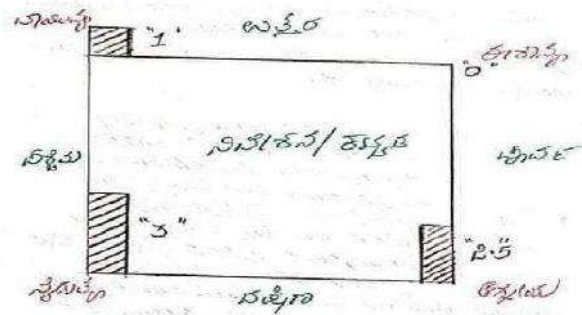 ವಾಯುವ್ಯ "1" ಉತ್ತರ ಈಶಾನ್ಯ
"0"
ಪಶ್ಚಿಮ ನಿವೇಶನ/ಕಟ್ಟಡ ಪೂರ್ವ
"3"
ನೈರುತ್ಯ ದಕ್ಷಿಣ ಆಗ್ನೇಯ